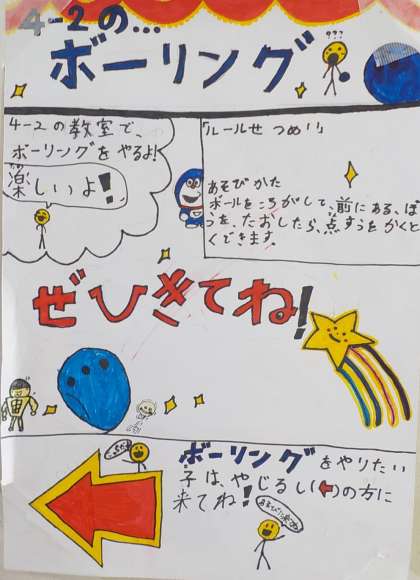 4-2の...
ボーリング
???
4-2の教室で、
ボーリングをやるよ!
楽しいよ!
「ルールせつめい」
あそびかた
ボールをころがして、前にある、ぼ
うを、たおしたら、点すうをかくと
くできます。
ぜひきてね!
宙
ボーリングをやりたい
子は、やじるし(⬅)の方に
来てね!